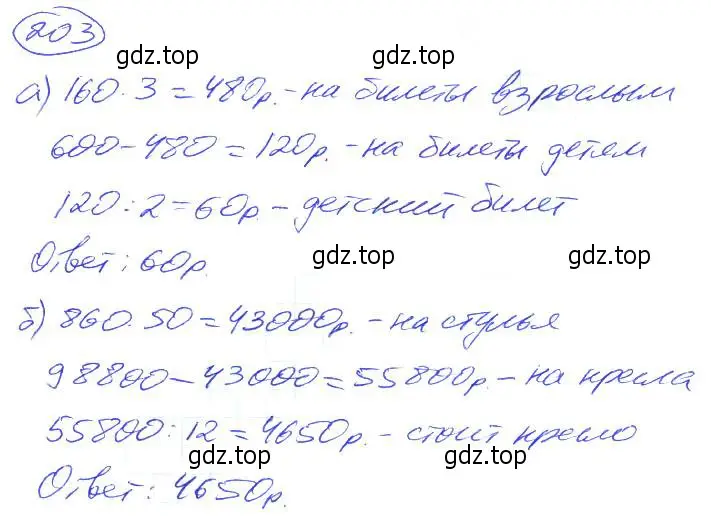 203
gdz.top gdz.top
а) 160·3=480р.-на билеты взрослым
600-480=120р.-на билеты детям
gdz.top
120:2=60р.-детский билет
gdz.top gdz.top
Ответ: 60р.
gdz.top
б) 860·50=43000р.-на стулья
98800-43000=55800р.-на кресла
gdz.top gdz.top
55800:12=4650р.-стоит кресло
gdz.top gdz.top
Ответ: 4650р.
gdz.top